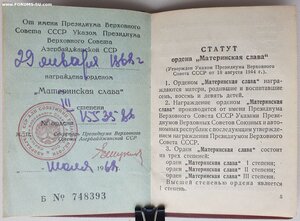 www.FORUMS-SU.com
От имени Президиума Верховного
Совета СССР Указом Президиума
Верховного Совета
Азербайджанской ССР
29 января 1968 г.
награждена орденом
„Материнская слава“
III степени
№ ордена 553586
М. П. Секретарь Президиума Верховного
Совета Азербайджанской ССР
июля 1968 г.
Б № 748393
СТАТУТ
ордена „Материнская слава“
(Утвержден Указом Президиума Верховного
Совета СССР от 18 августа 1944 г.)
1. Орденом „Материнская слава“ награждаются
матери, родившие и воспитавшие
семь, восемь и девять детей.
2. Награждение орденом „Материнская
слава“ производится от имени Президиума
Верховного Совета СССР Указами Президиумов
Верховных Советов Союзных и автономных
республик последующим утверждением
Президиумом Верховного
Совета СССР.
3. Орден „Материнская слава“ состоит
из трех степеней:
орден „Материнская слава“ I степени;
орден „Материнская слава“ II степени;
орден „Материнская слава“ III степени.
Высшей степенью ордена является
I степень.